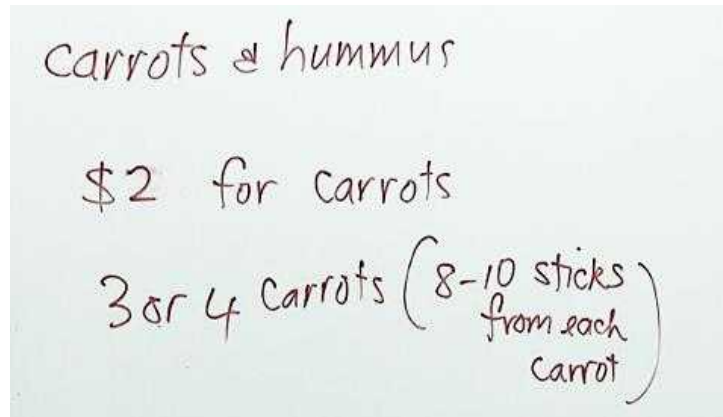 carrots & hummus
$2 for carrots
3 or 4 carrots (8-10 sticks
from each
carrot)